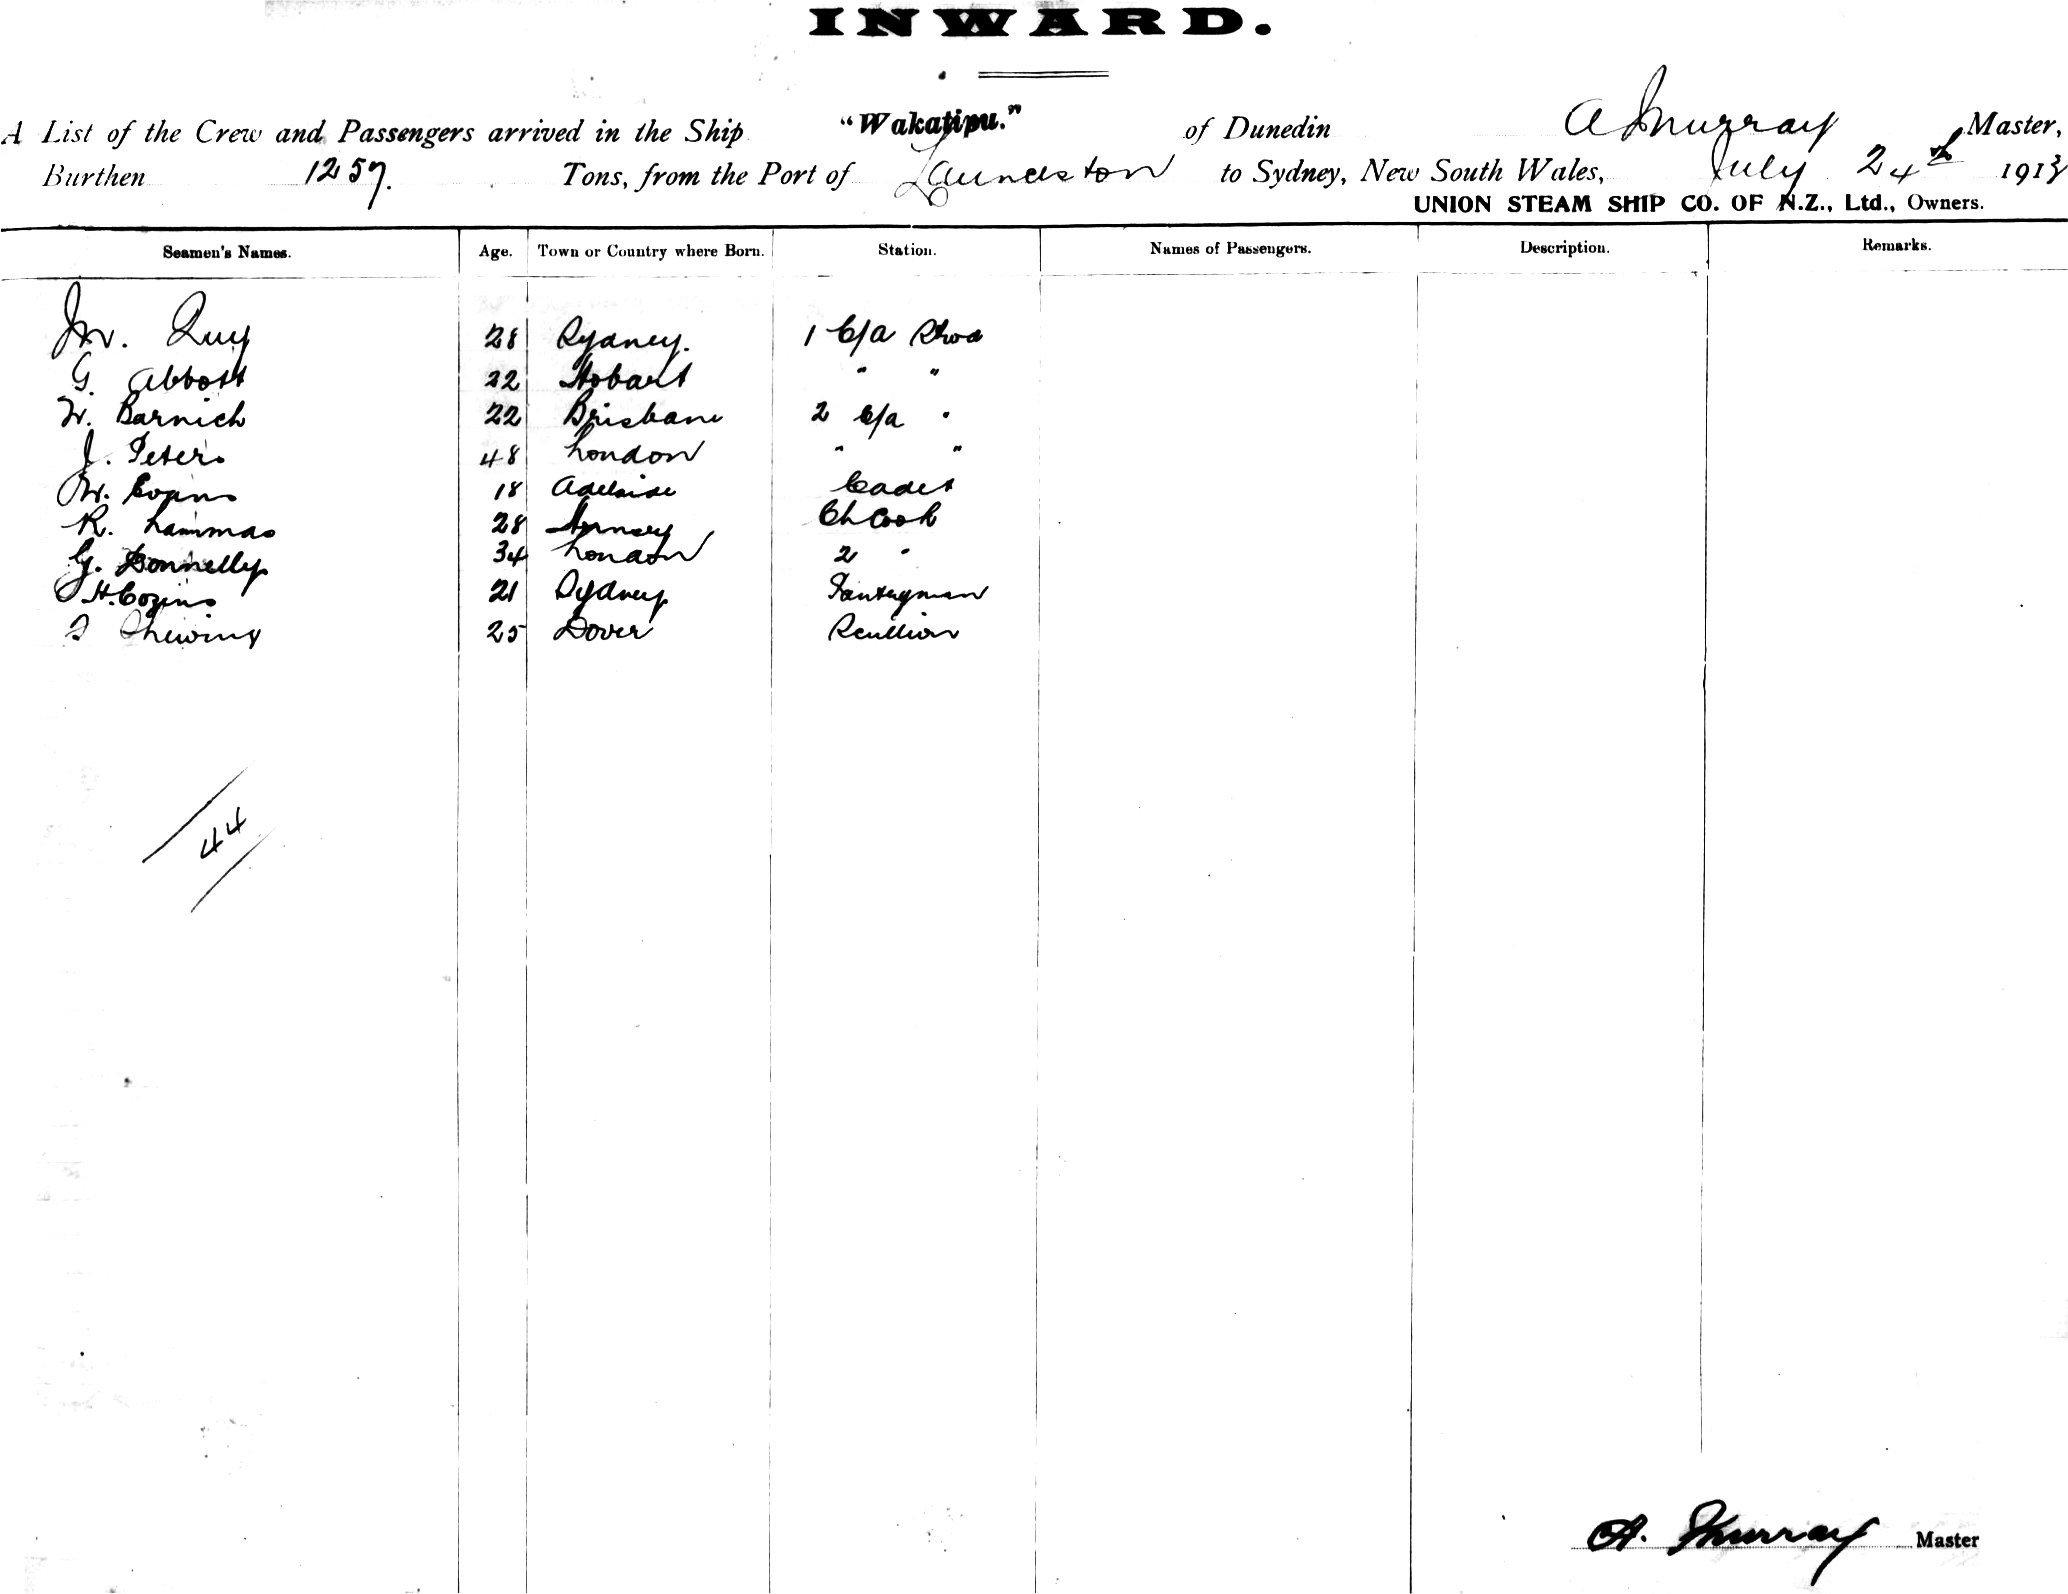 INWARD.
A List of the Crew and Passengers arrived in the Ship "Wakatipu." of Dunedin A Murray Master,
Burthen 1257. Tons, from the Port of Launceston to Sydney, New South Wales, July 24th 1913
UNION STEAM SHIP CO. OF N.Z., Ltd., Owners.
Seamen's Names. Age. Town or Country where Born. Station. Names of Passengers. Description. Remarks.
28 Sydney. 1 C/a Stwd
G. Abbott 22 Hobart " "
W. Barnich 22 Brisbane 2 C/a "
J. Peters 48 London " "
W. Evans 18 Adelaide Cadet
R. Lammas 28 Ch Cook
G. Donnelly 34 London 2 "
H. Cozins 21 Sydney Pantryman
25 Dover Scullion
44
A. Murray Master